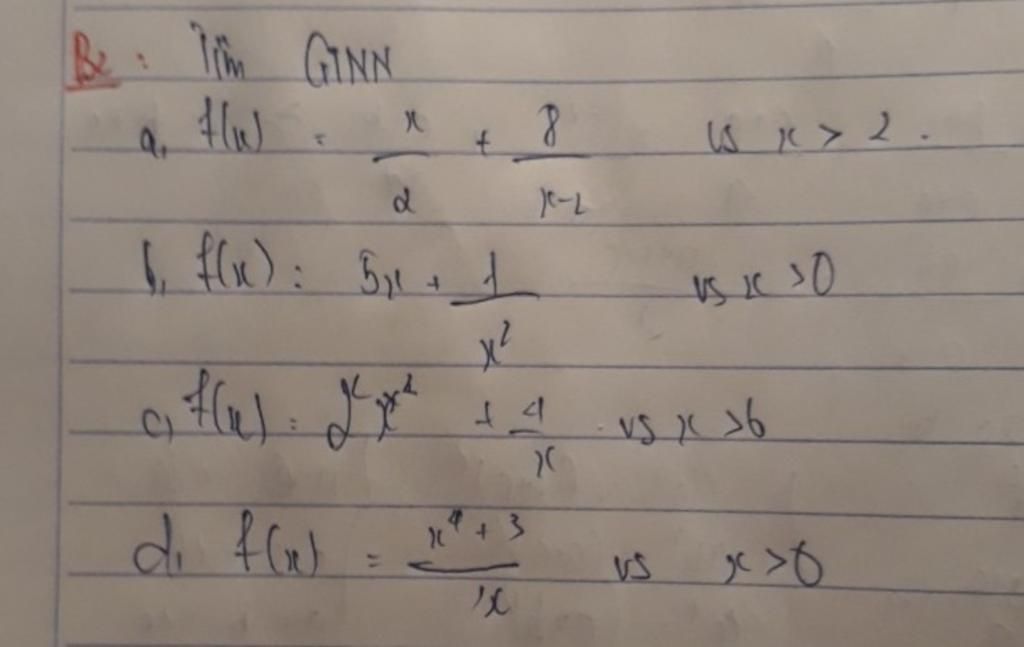 B2: Tìm GTNN
a, f(x) = x/2 + 8/(x-2) vs x > 2.
b, f(x) = 5x + 1/x² vs x > 0
c, f(x) = x² + 4/x vs x > 0
d, f(x) = (x⁴ + 3)/x vs x > 0